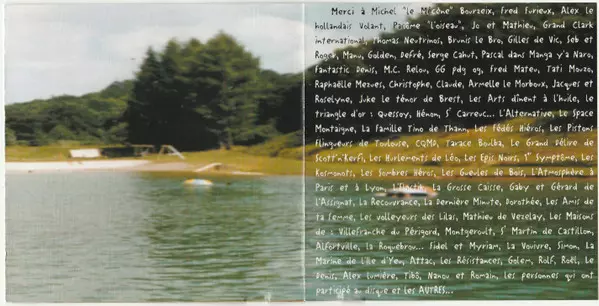 Merci à Michel "le Mécène" Bourzeix, Fred Furieux, Alex le
hollandais Volant, Parôme "l'oiseau", Jo et Mathieu, Grand Clark
international, Thomas Neutrinos, Brunis le Bro, Gilles de Vic, Seb et
Roger, Manu, Golden, Defré, Serge Cahut, Pascal dans Manga y'a Naro,
Fantastic Denis, M.C. Relou, GG pdg og, Fred Mateu, Tati Mouzo,
Raphaëlle Mezues, Christophe, Claude, Armelle le Morboux, Jacques et
Roselyne, Juke le ténor de Brest, Les Arts dînent à l'huile, le
triangle d'or : Quessoy, Hénon, S' Carreuc... L'Alternative, Le Space
Montaigne, La famille Tino de Thann, Les Fédés Hiéros, Les Pistons
Flingueurs de Toulouse, CQMD, Tavace Boulba, Le Grand Délire de
Scott'n'Kerfi, Les Hurlements de Léo, Les Epis Noirs, 1° Symptôme, Les
Kosmonots, Les Sombres Héros, Les Gueules de Bois, L'Atmosphère à
Paris et à Lyon, La Grosse Caisse, Gaby et Gérard de
l'Assignat, La Recouvrance, La Dernière Minute, Dorothée, Les Amis de
ta femme, Les volleyeurs des Lilas, Mathieu de Vezelay, Les Maisons
de : Villefranche du Périgord, Montgeroult, S' Martin de Castillon,
Alfortville, la Roquebrou... Sidel et Myriam, La Vouivre, Simon, La
Marine de l'île d'Yeu, Attac, les Résistances, Golem, Rolf, Roël, Le
Denis, Alex Lumière, Tibô, Nanou et Romain, les personnes qui ont
participé au disque et les AUTRES...